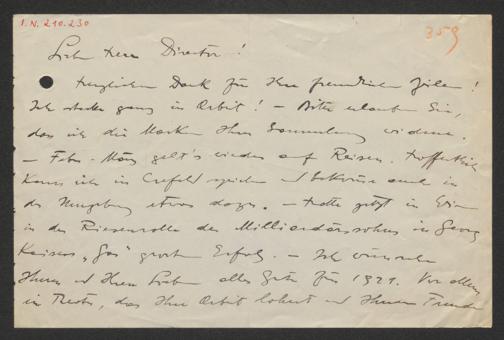 I.N. 210.230
359
Lieber Herr Director!
Herzlichen Dank für Ihre freundlichen Zeilen!
Ich stecke ganz in Arbeit! – Bitte erlauben Sie,
das ich die Marken Ihrer Sammlung widme.
– Febr. - März gelt's wieder auf Reisen. Hoffentlich
kann ich in Crefeld spielen und bekomme auch in
der Umgebung etwas dazu. – Hatte jetzt in Wien
in der Riesenrolle des Milliardärsohns in Georg
Kaisers „Gas" großen Erfolg. – Ich wünsche
Ihnen und Ihren Lieben alles Gute für 1921. Vor allem
im Theater, das Ihre Arbeit lohnt und Ihnen Freude